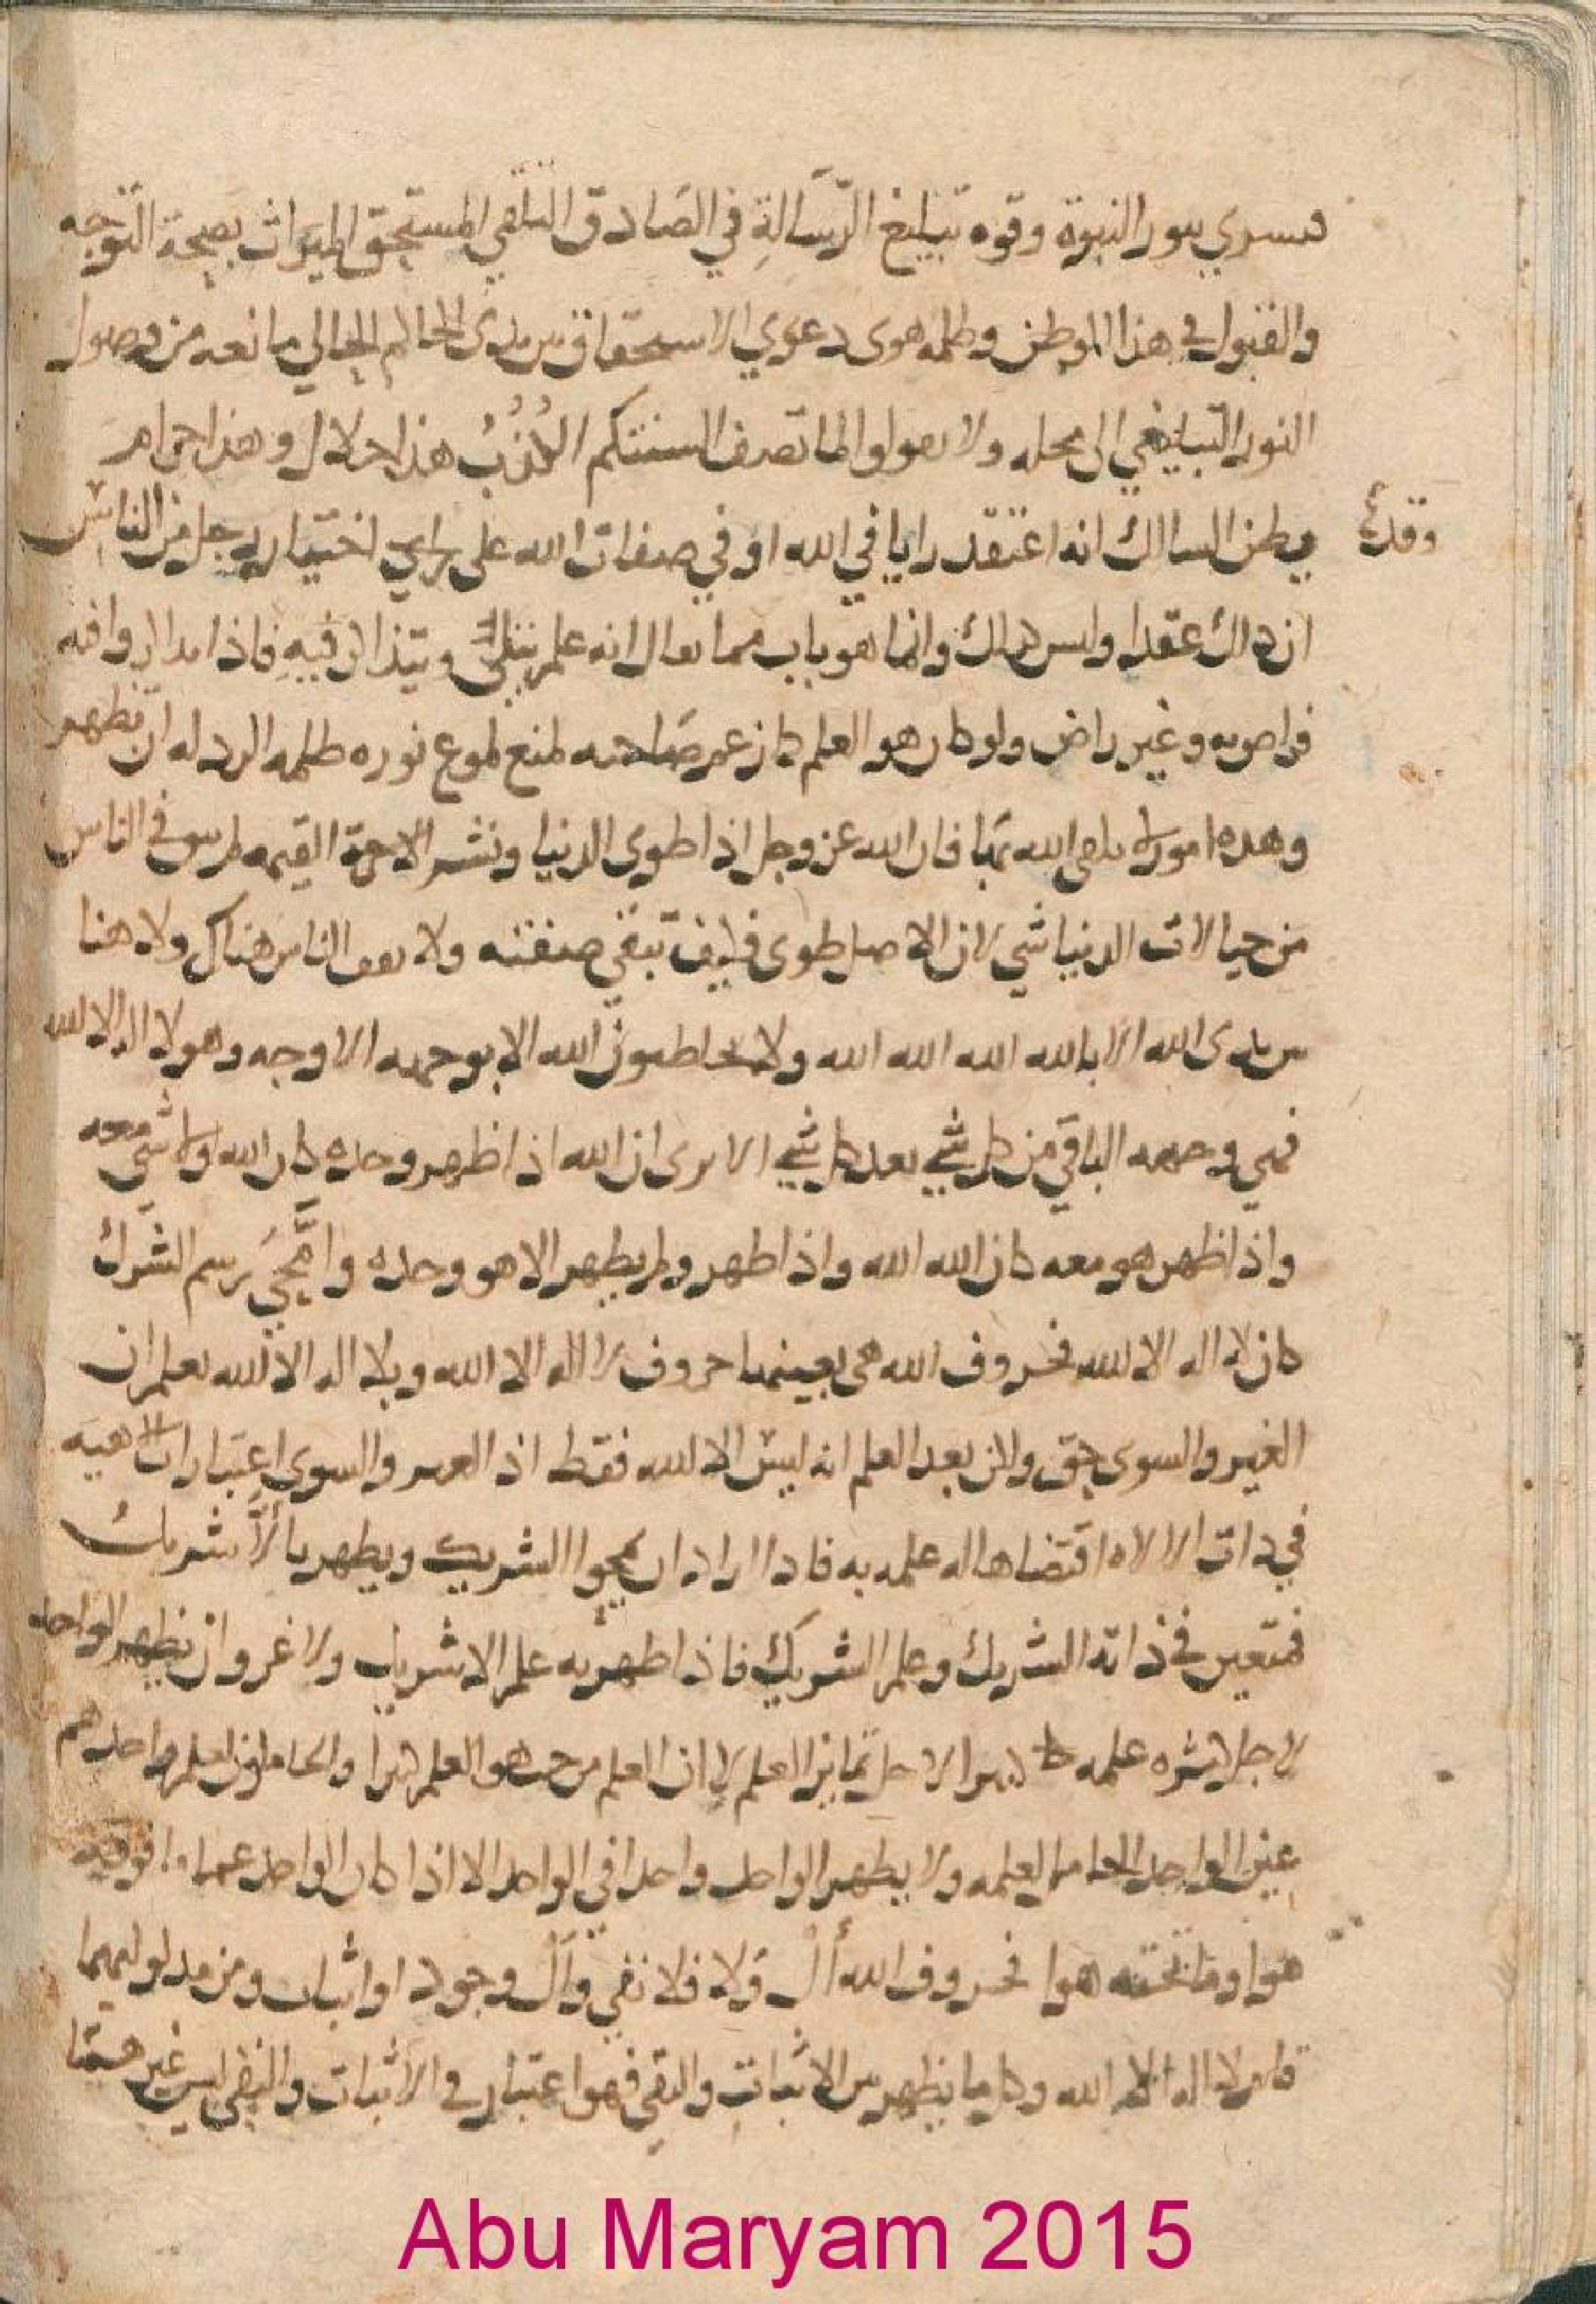 فيسري بنور النبوة وقوة تبليغ الرسالة في الصادق التلقي المستحق الميراث بصحة التوجه
والقبول في هذا الموطن وظلمة هوى دعوى الاستحقاق بين يدي الحاكم الحالي مانعه من وصول
النور التبليغي الى محله ولا تقولوا لما تصف السنتكم الكذب هذا حلال وهذا حرام
وقد
يظن السالك انه اعتقد رايا في الله او في صفات الله على راي اختيار رجل من الناس
ان ذلك عقدا وليس كذلك وانما هو باب مما يقال انه علم ويتذاكر فيه فاذا
وغير راض ولو كان هو العلم كان عمر صاحبه لمنع لموع نوره ظلمة ان تظهر
وهذه امور فان الله عز وجل اذا طوى الدنيا ونشر الاخرة القيمه لم يبق في الناس
من خيالات الدنيا شي لان الاصل طوى فكيف تبقى صفته ولا يقف الناس هناك ولا هنا
بين يدي الله الا بالله الله الله الله ولا يخاطبون الله الا بوجهه الاوجه وهو لا اله الا الله
فهي وجهه الباقي من كل شي بعد كل شي الا ترى ان الله اذا ظهر وحده كان الله ولا شي معه
واذا ظهر هو معه كان الله الله واذا ظهر ولم يظهر الا هو وحده وامحي رسم الشرك
كان لا اله الا الله فحروف الله هي بعينها حروف لا اله الا الله وبلا اله الا الله يعلم ان
الغير والسوى حق ولان بعد العلم انه ليس الا الله فقط اذ الغير والسوى اعتبارات الاهيه
في ذات الالاه اقتضاها له علمه به فاذا اراد ان يمحوا الشريك ويظهر بالا شريك
فتعين في ذاته الشريك وعلم الشريك فاذا ظهر به علم الا شريك ولا غرو ان يظهر الواحد
لاجل كثره علمه الاجل تمايز العلم لا ان العلم من حيث هو العلم كثيرا والحاملون لعلم واحد هم
عين الواحد الحامل لعلمه ولا يظهر الواحد واحدا في الواحد الا اذا كان الواحد عما ما فوقه
هوا وما تحته هوا فحروف الله أل ولا فلا نفي وأل وجود او اثبات ومن مدلوليهما
قام لا اله الا الله وكل ما يظهر من الاثبات والنفي فهو اعتبار في الاثبات والنفي ليس غير هيتا
Abu Maryam 2015